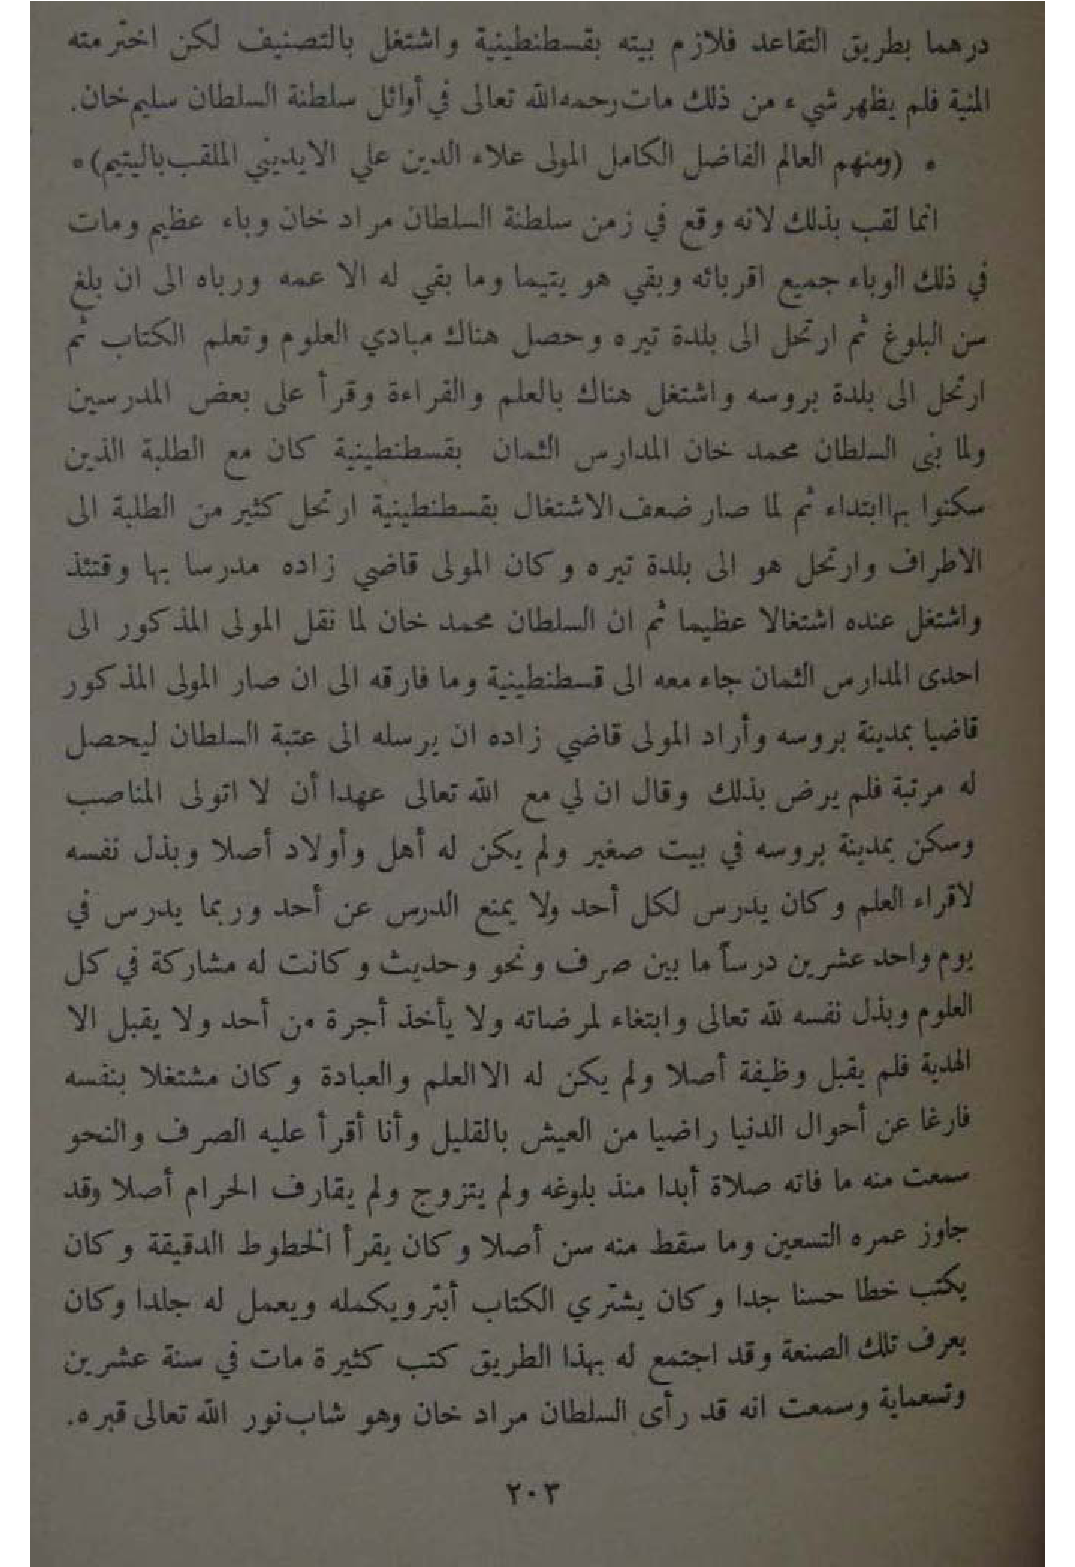 درهما بطريق التقاعد فلازم بيته بقسطنطينية واشتغل بالتصنيف لكن اخترمته
المنية فلم يظهر شيء من ذلك مات رحمه الله تعالى في أوائل سلطنة السلطان سليم خان.
* (ومنهم العالم الفاضل الكامل المولى علاء الدين علي الايديني الملقب باليتيم) *
انما لقب بذلك لانه وقع في زمن سلطنة السلطان مراد خان وباء عظيم ومات
في ذلك الوباء جميع اقربائه وبقي هو يتيما وما بقي له الا عمه ورباه الى ان بلغ
سن البلوغ ثم ارتحل الى بلدة تيره وحصل هناك مبادي العلوم وتعلم الكتاب ثم
ارتحل الى بلدة بروسه واشتغل هناك بالعلم والقراءة وقرأ على بعض المدرسين
ولما بنى السلطان محمد خان المدارس الثمان بقسطنطينية كان مع الطلبة الذين
سكنوا بها ابتداء ثم لما صار ضعف الاشتغال بقسطنطينية ارتحل كثير من الطلبة الى
الاطراف وارتحل هو الى بلدة تيره وكان المولى قاضي زاده مدرسا بها وقتئذ
واشتغل عنده اشتغالا عظيما ثم ان السلطان محمد خان لما نقل المولى المذكور الى
احدى المدارس الثمان جاء معه الى قسطنطينية وما فارقه الى ان صار المولى المذكور
قاضيا بمدينة بروسه وأراد المولى قاضي زاده ان يرسله الى عتبة السلطان ليحصل
له مرتبة فلم يرض بذلك وقال ان لي مع الله تعالى عهدا أن لا اتولى المناصب
وسكن بمدينة بروسه في بيت صغير ولم يكن له أهل وأولاد أصلا وبذل نفسه
لاقراء العلم وكان يدرس لكل أحد ولا يمنع الدرس عن أحد وربما يدرس في
يوم واحد عشرين درساً ما بين صرف ونحو وحديث وكانت له مشاركة في كل
العلوم وبذل نفسه لله تعالى وابتغاء لمرضاته ولا يأخذ أجرة من أحد ولا يقبل الا
الهدية فلم يقبل وظيفة أصلا ولم يكن له الا العلم والعبادة وكان مشتغلا بنفسه
فارغا عن أحوال الدنيا راضيا من العيش بالقليل وأنا أقرأ عليه الصرف والنحو
سمعت منه ما فاته صلاة أبدا منذ بلوغه ولم يتزوج ولم يقارف الحرام أصلا وقد
جاوز عمره التسعين وما سقط منه سن أصلا وكان يقرأ الخطوط الدقيقة وكان
يكتب خطا حسنا جدا وكان يشتري الكتاب أبتر ويكمله ويعمل له جلدا وكان
يعرف تلك الصنعة وقد اجتمع له بهذا الطريق كتب كثيرة مات في سنة عشرين
وتسعماية وسمعت انه قد رأى السلطان مراد خان وهو شاب نور الله تعالى قبره.
٢٠٣